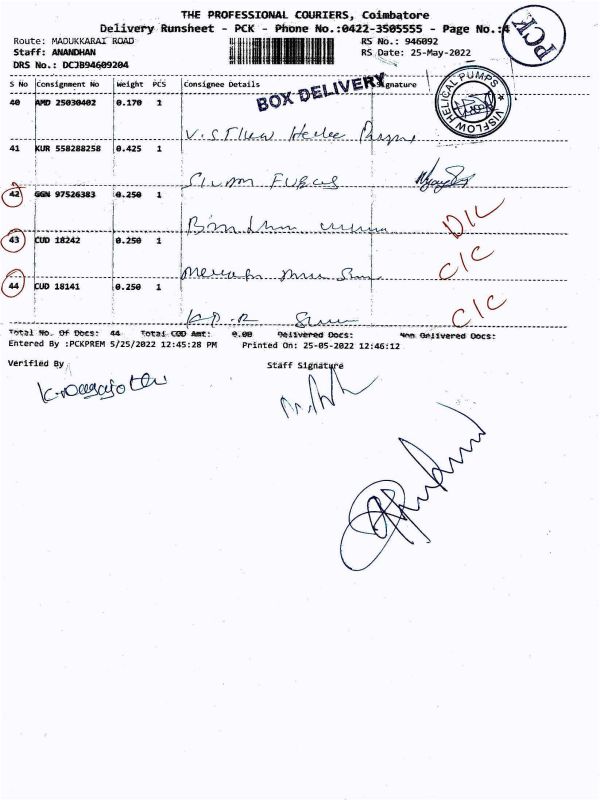 THE PROFESSIONAL COURIERS, Coimbatore
Delivery Runsheet - PCK - Phone No.:0422-3505555 - Page No.:4
PCK
Route: MADUKKARAI ROAD
RS No.: 946092
Staff: ANANDHAN
RS Date: 25-May-2022
DRS No.: DCJB94609204
S No Consignment No Weight PCS Consignee Details Signature
BOX DELIVERY
VISFLOW HELICAL PUMPS
40 AMD 25030402 0.170 1
41 KUR 558288258 0.425 1
42 GGN 97526383 0.250 1
D/L
43 CUD 18242 0.250 1
C/C
44 CUD 18141 0.250 1
C/C
Total No. Of Docs: 44 Total COD Amt: 0.00 Delivered Docs: Non Delivered Docs:
Entered By :PCKPREM 5/25/2022 12:45:28 PM Printed On: 25-05-2022 12:46:12
Verified By
Staff Signature